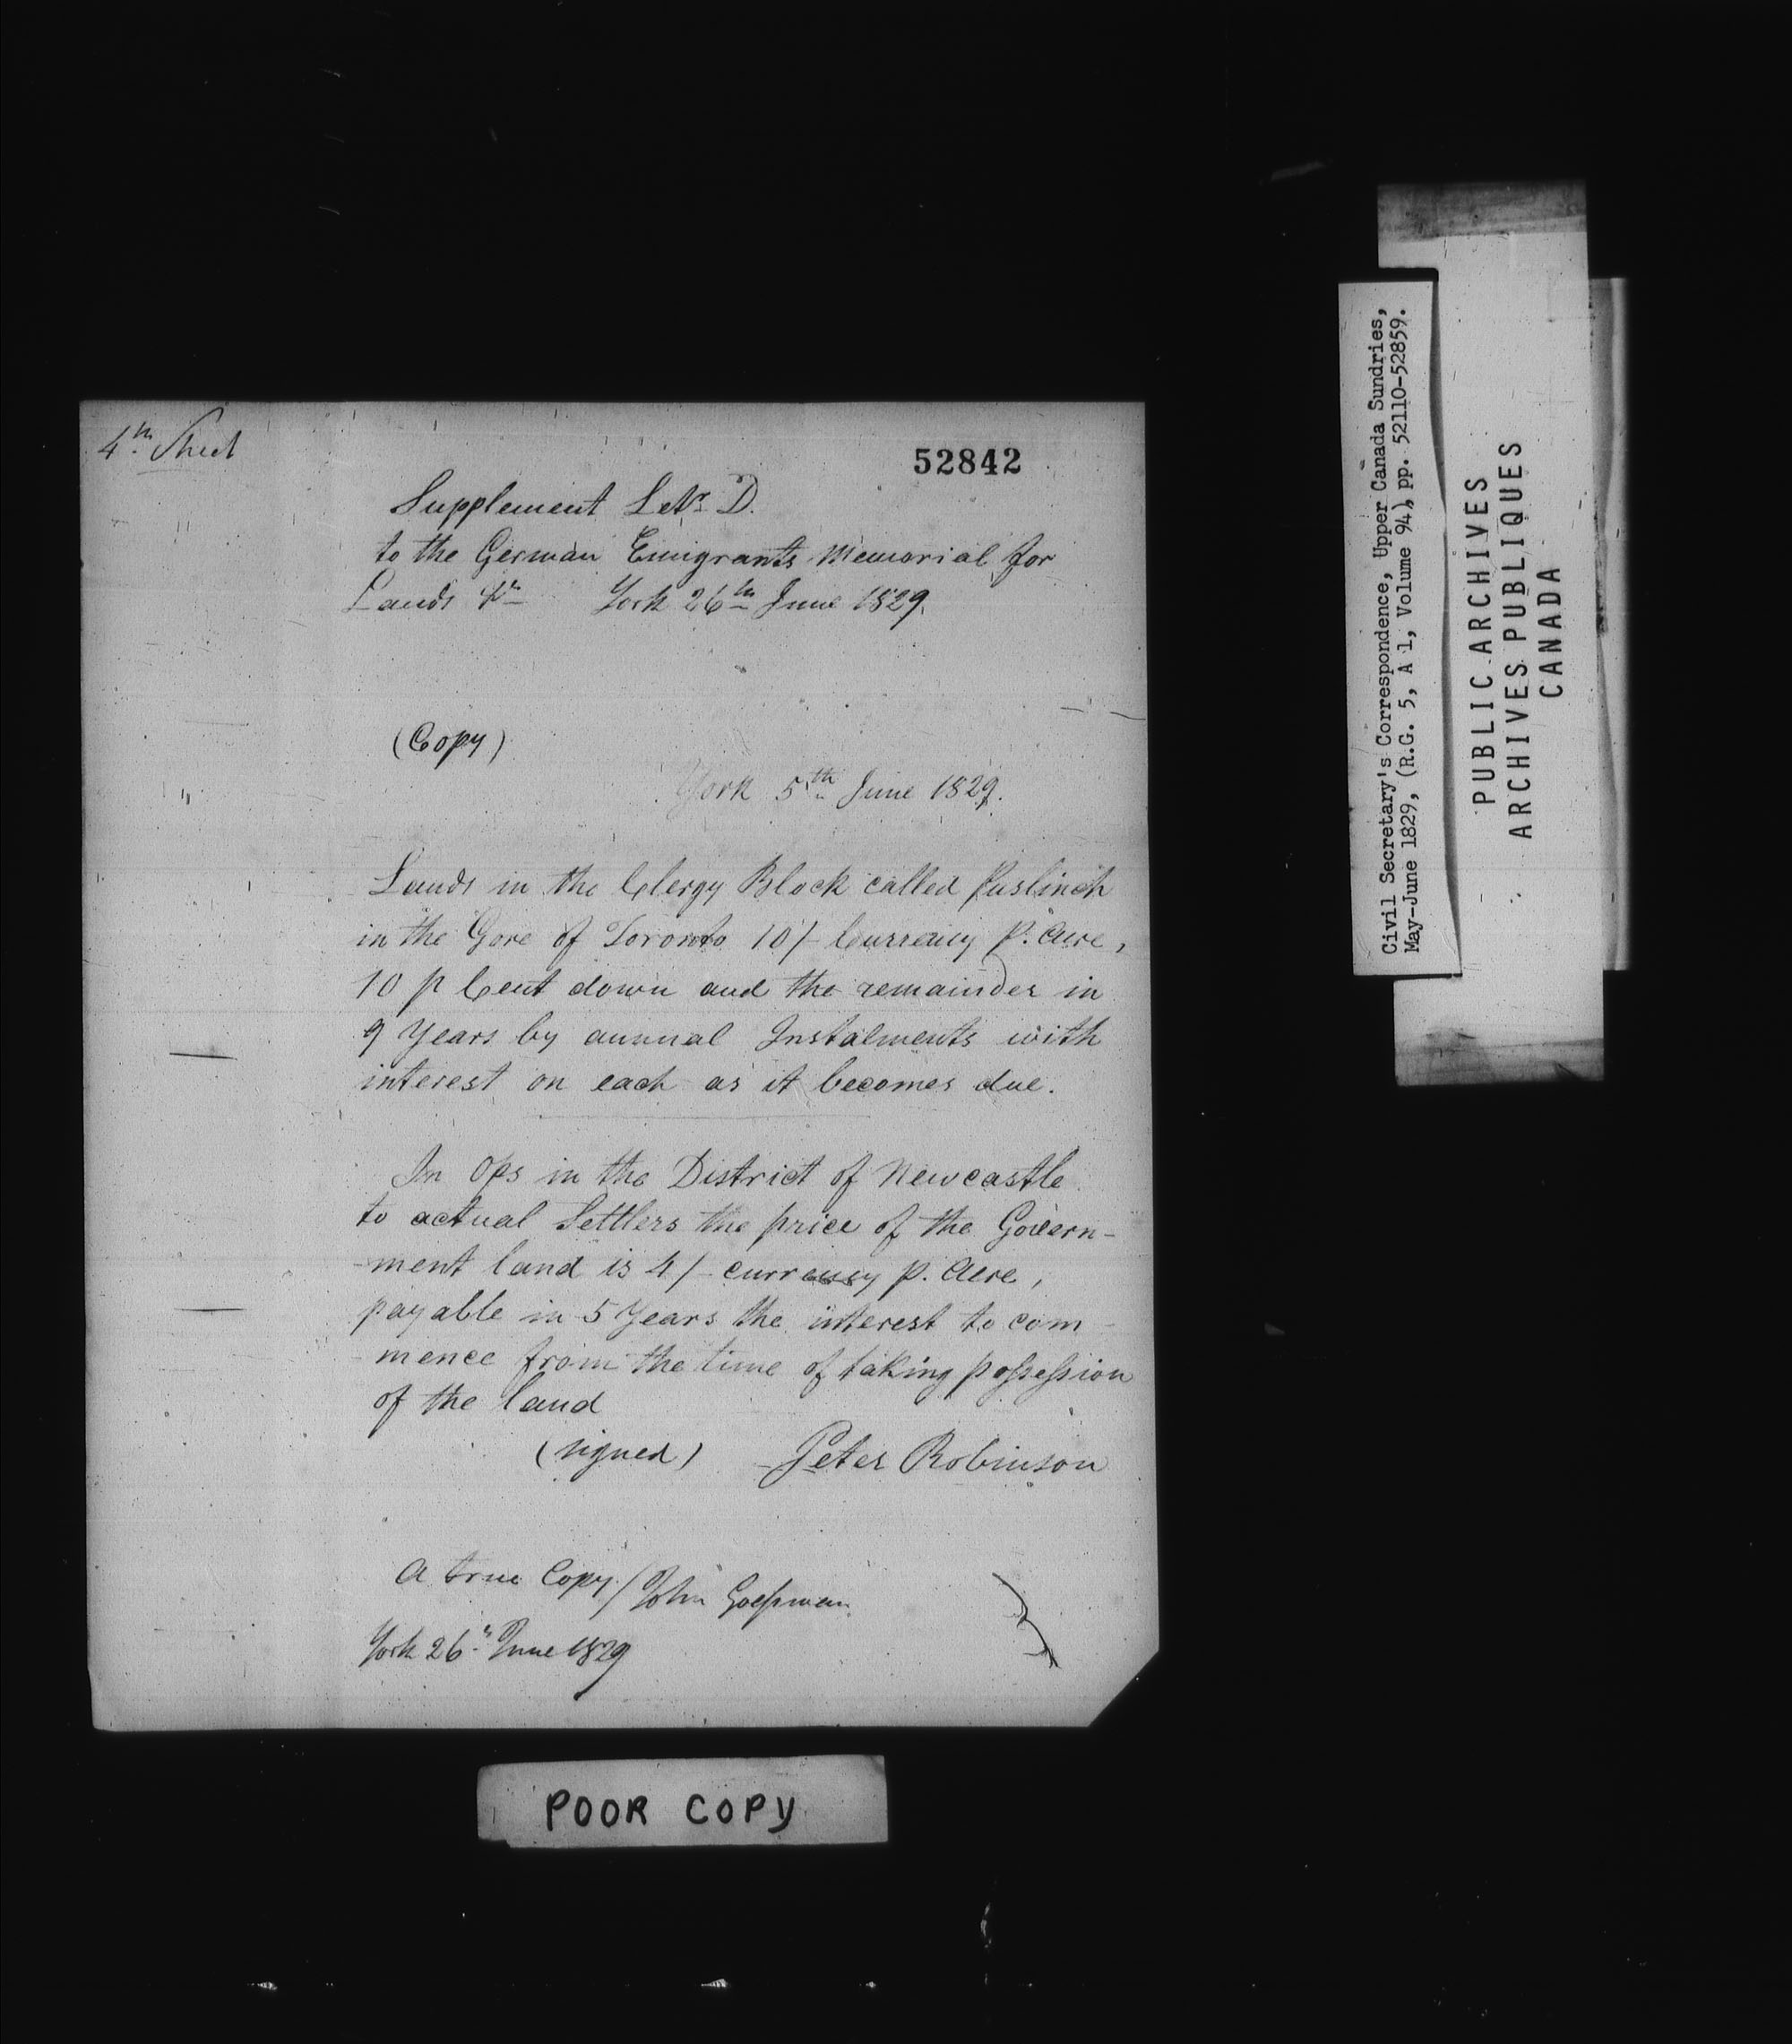 4th Sheet
52842
Supplement Letr D.
to the German Emigrants Memorial for
Lands &c York 26th June 1829.
(Copy)
York 5th June 1829.
Lands in the Clergy Block called Puslinch
in the Gore of Toronto 10/- Currency P. Acre,
10 p Cent down and the remainder in
9 Years by annual Instalments with
interest on each as it becomes due.
In Ops in the District of Newcastle
to actual Settlers the price of the Govern-
-ment land is 4/- currency p. Acre,
payable in 5 Years the interest to com-
mence from the time of taking possession
of the land
(signed) Peter Robinson
A true Copy / John Goessman
York 26th June 1829
POOR COPY
Civil Secretary's Correspondence, Upper Canada Sundries,
May-June 1829, (R.G. 5, A 1, Volume 94), pp. 52110-52859.
PUBLIC ARCHIVES
ARCHIVES PUBLIQUES
CANADA